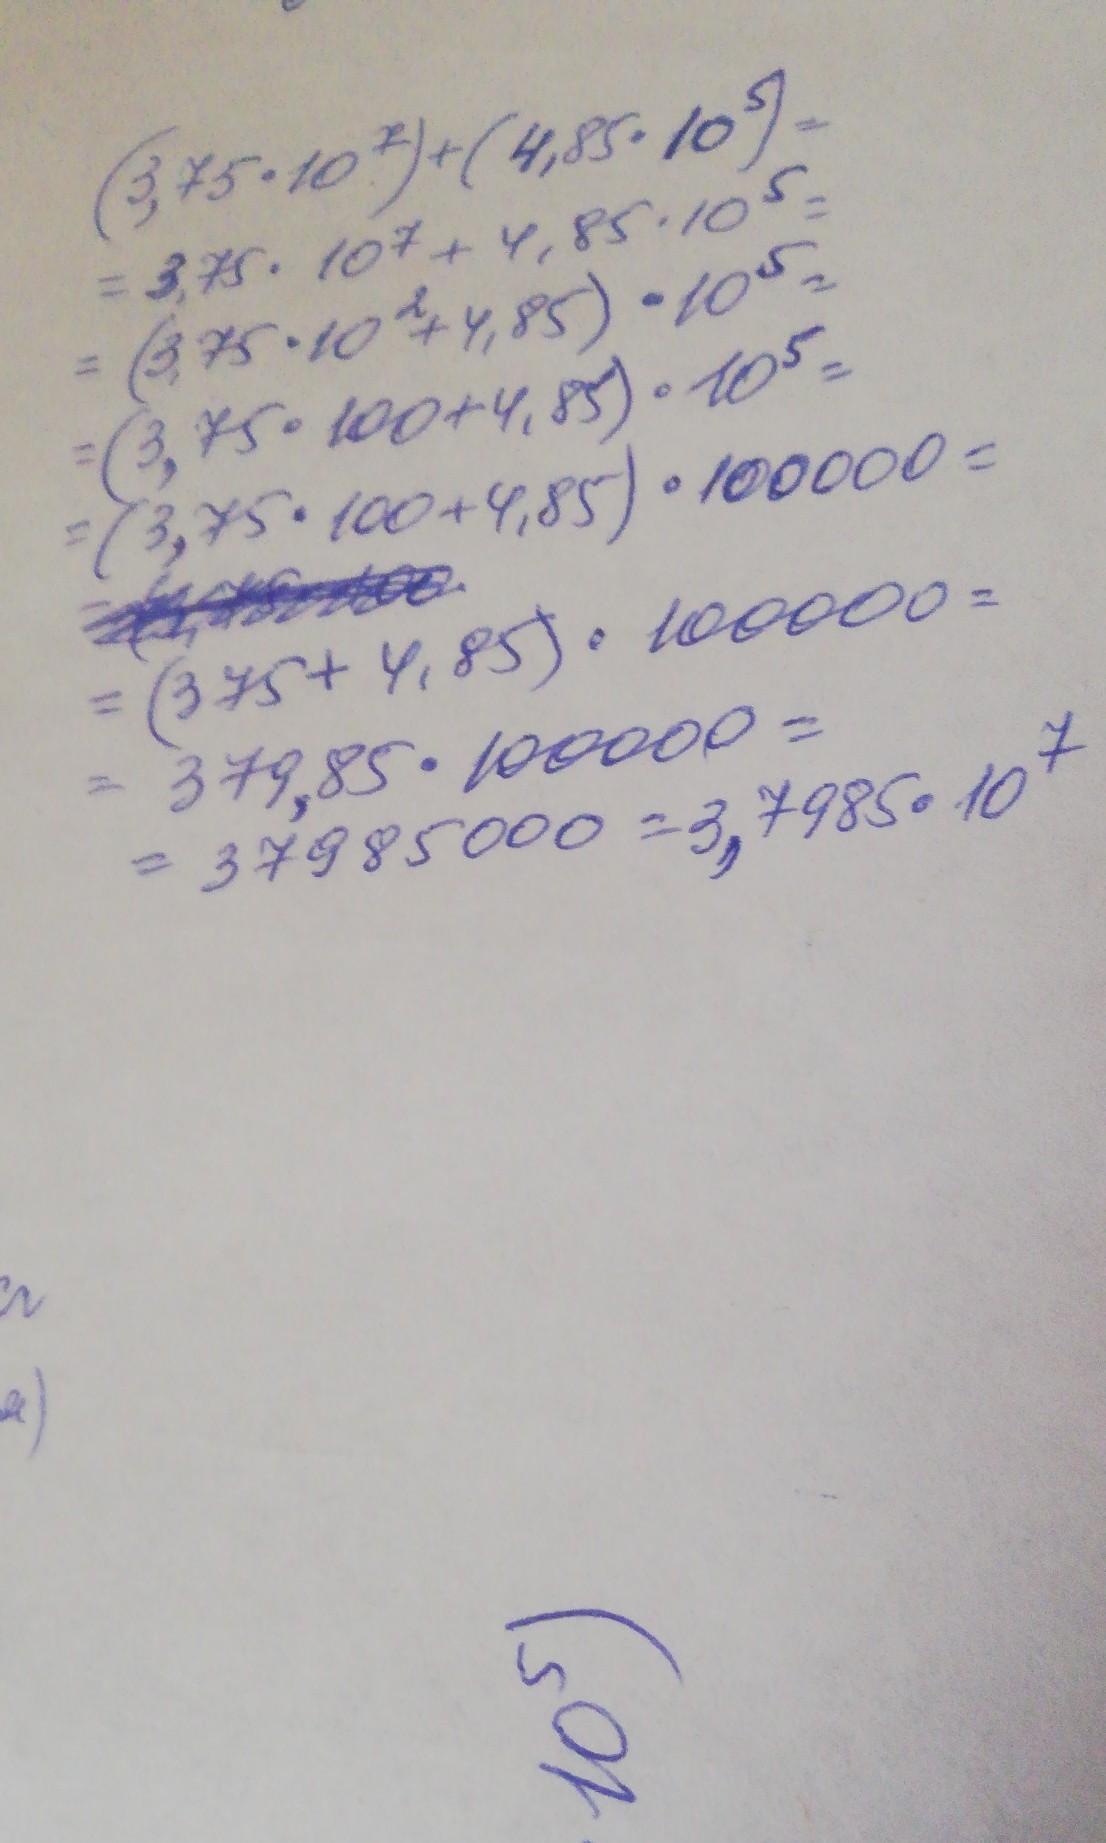 (3,75·10⁷)+(4,85·10⁵)=
=3,75·10⁷+4,85·10⁵=
=(3,75·10²+4,85)·10⁵=
=(3,75·100+4,85)·10⁵=
=(3,75·100+4,85)·100000=
=(375+4,85)·100000=
=379,85·100000=
=37985000=3,7985·10⁷
·10⁵)